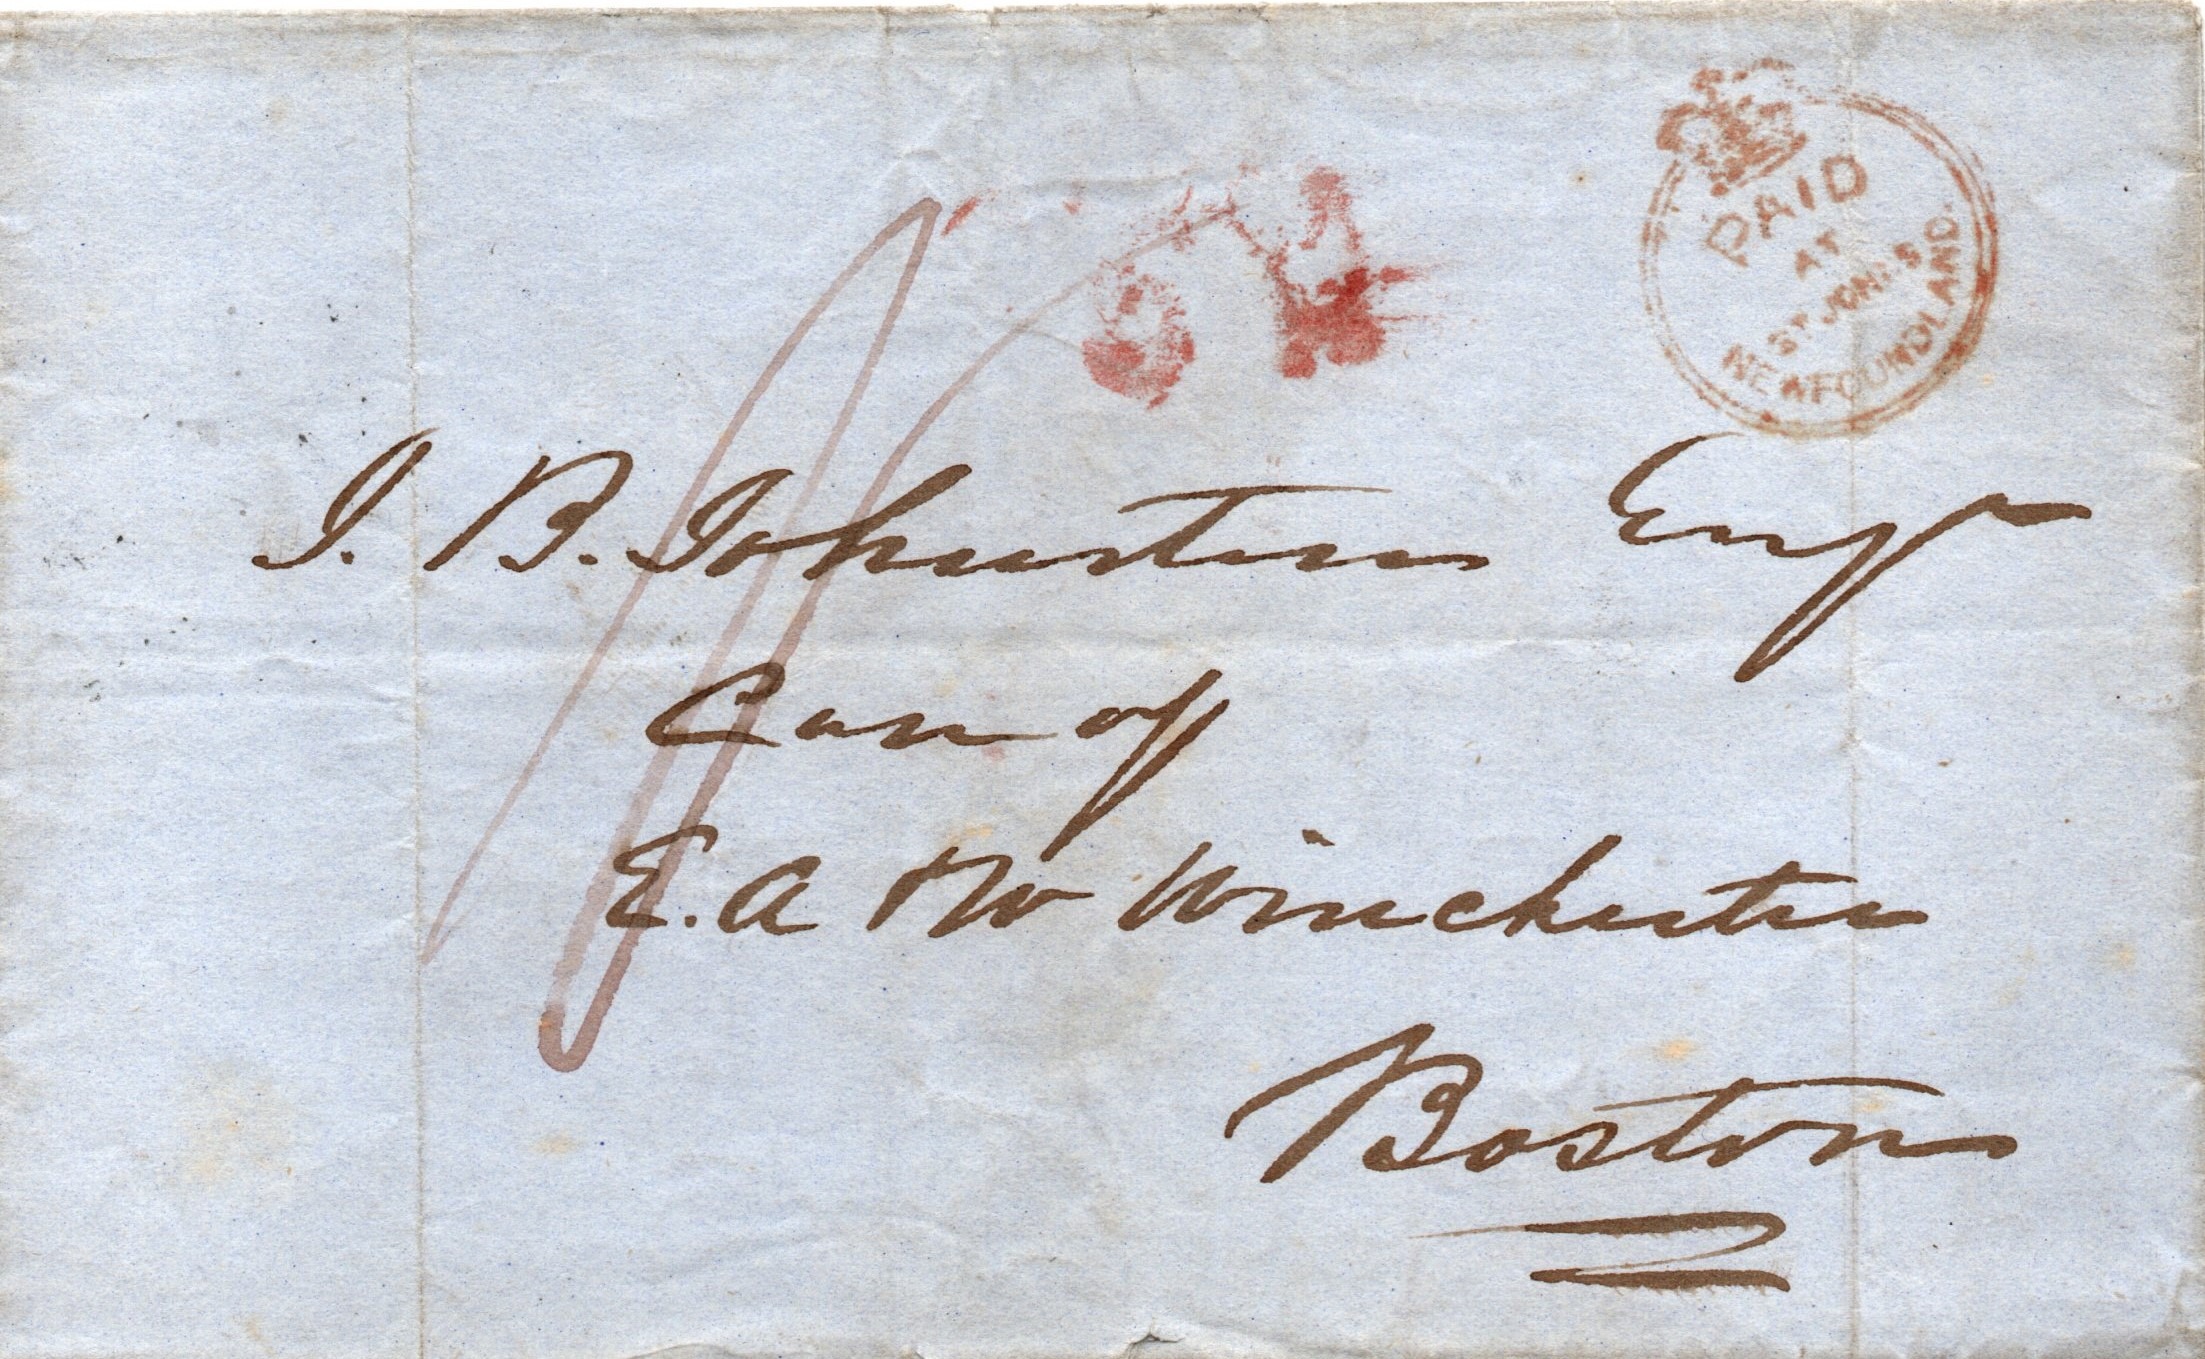 PAID
AT
ST JOHN'S
NEWFOUNDLAND.
J. B. Johnston Esqr
Care of
E. A & W Winchester
Boston